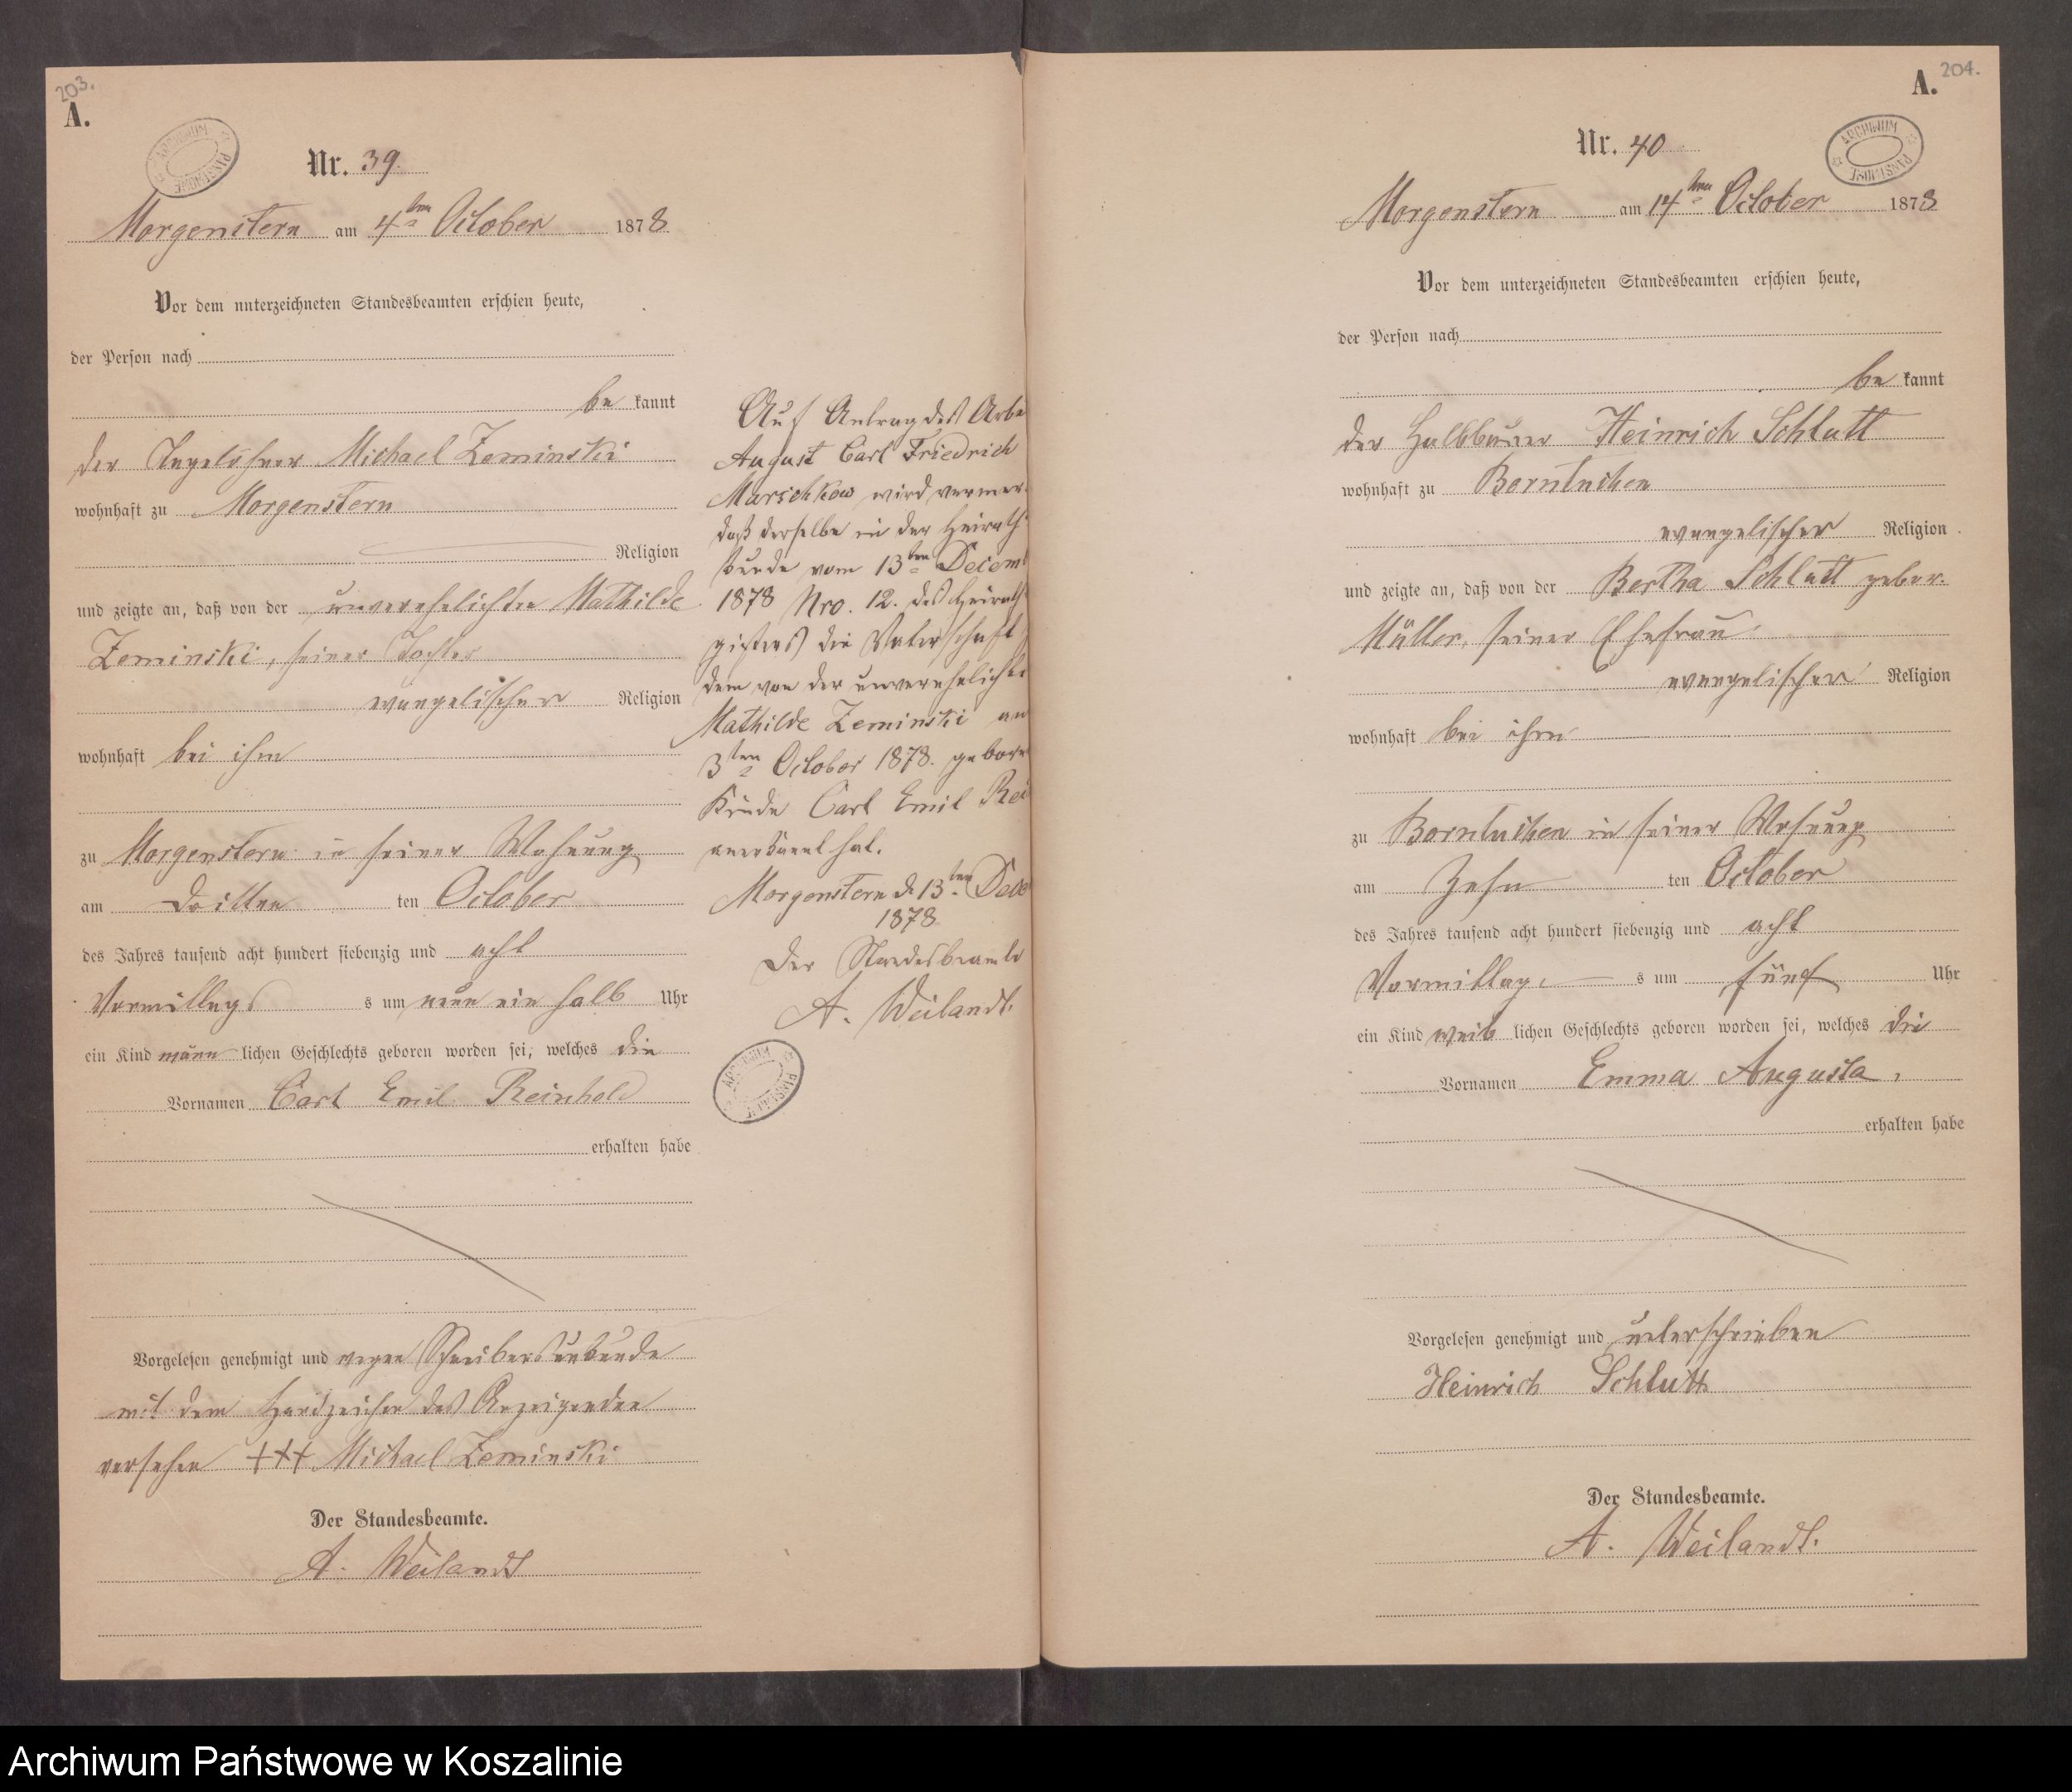 203.
A.
ARCHIWUM PAŃSTWOWE
Nr. 39.
Morgenstern am 4ten October 1878
Vor dem unterzeichneten Standesbeamten erschien heute,
der Person nach
be kannt
der Tagelöhner Michael Zeminski
wohnhaft zu Morgenstern
Religion
und zeigte an, daß von der unverehelichten Mathilde
Zeminski, seiner Tochter
evangelischer Religion
wohnhaft bei ihm
zu Morgenstern in seiner Wohnung
am dritten ten October
des Jahres tausend acht hundert siebenzig und acht
Vormittags s um neun ein halb Uhr
ein Kind männ lichen Geschlechts geboren worden sei, welches die
Vornamen Carl Emil Reinhold
erhalten habe
Vorgelesen genehmigt und wegen Schreibensunkunde
mit dem Handzeichen des Anzeigenden
versehen +++ Michael Zeminski
Der Standesbeamte.
A. Weilandt
Auf Antrag des Arbe
August Carl Friedrich
Marschkow wird vermer
daß derselbe in der Heiraths
kunde vom 13ten Decem
1878 Nro. 12. des Heiraths
gisters die Vaterschaft
dem von der unverehelichte
Mathilde Zeminski am
3ten October 1878. gebore
Kinde Carl Emil Rei
anerkannt hat.
Morgenstern d. 13ten Dece
1878
Der Standesbeamte
A. Weilandt.
ARCHIWUM PAŃSTWOWE
A. 204.
ARCHIWUM PAŃSTWOWE
Nr. 40
Morgenstern am 14ten October 1878
Vor dem unterzeichneten Standesbeamten erschien heute,
der Person nach
be kannt
der Halbbauer Heinrich Schlutt
wohnhaft zu Borntuchen
evangelischer Religion
und zeigte an, daß von der Bertha Schlutt gebor.
Müller, seiner Ehefrau
evangelischer Religion
wohnhaft bei ihm
zu Borntuchen in seiner Wohnung
am Zehn ten October
des Jahres tausend acht hundert siebenzig und acht
Vormittag s um fünf Uhr
ein Kind weib lichen Geschlechts geboren worden sei, welches die
Vornamen Emma Augusta,
erhalten habe
Vorgelesen genehmigt und unterschrieben
Heinrich Schlutt
Der Standesbeamte.
A. Weilandt.
Archiwum Państwowe w Koszalinie